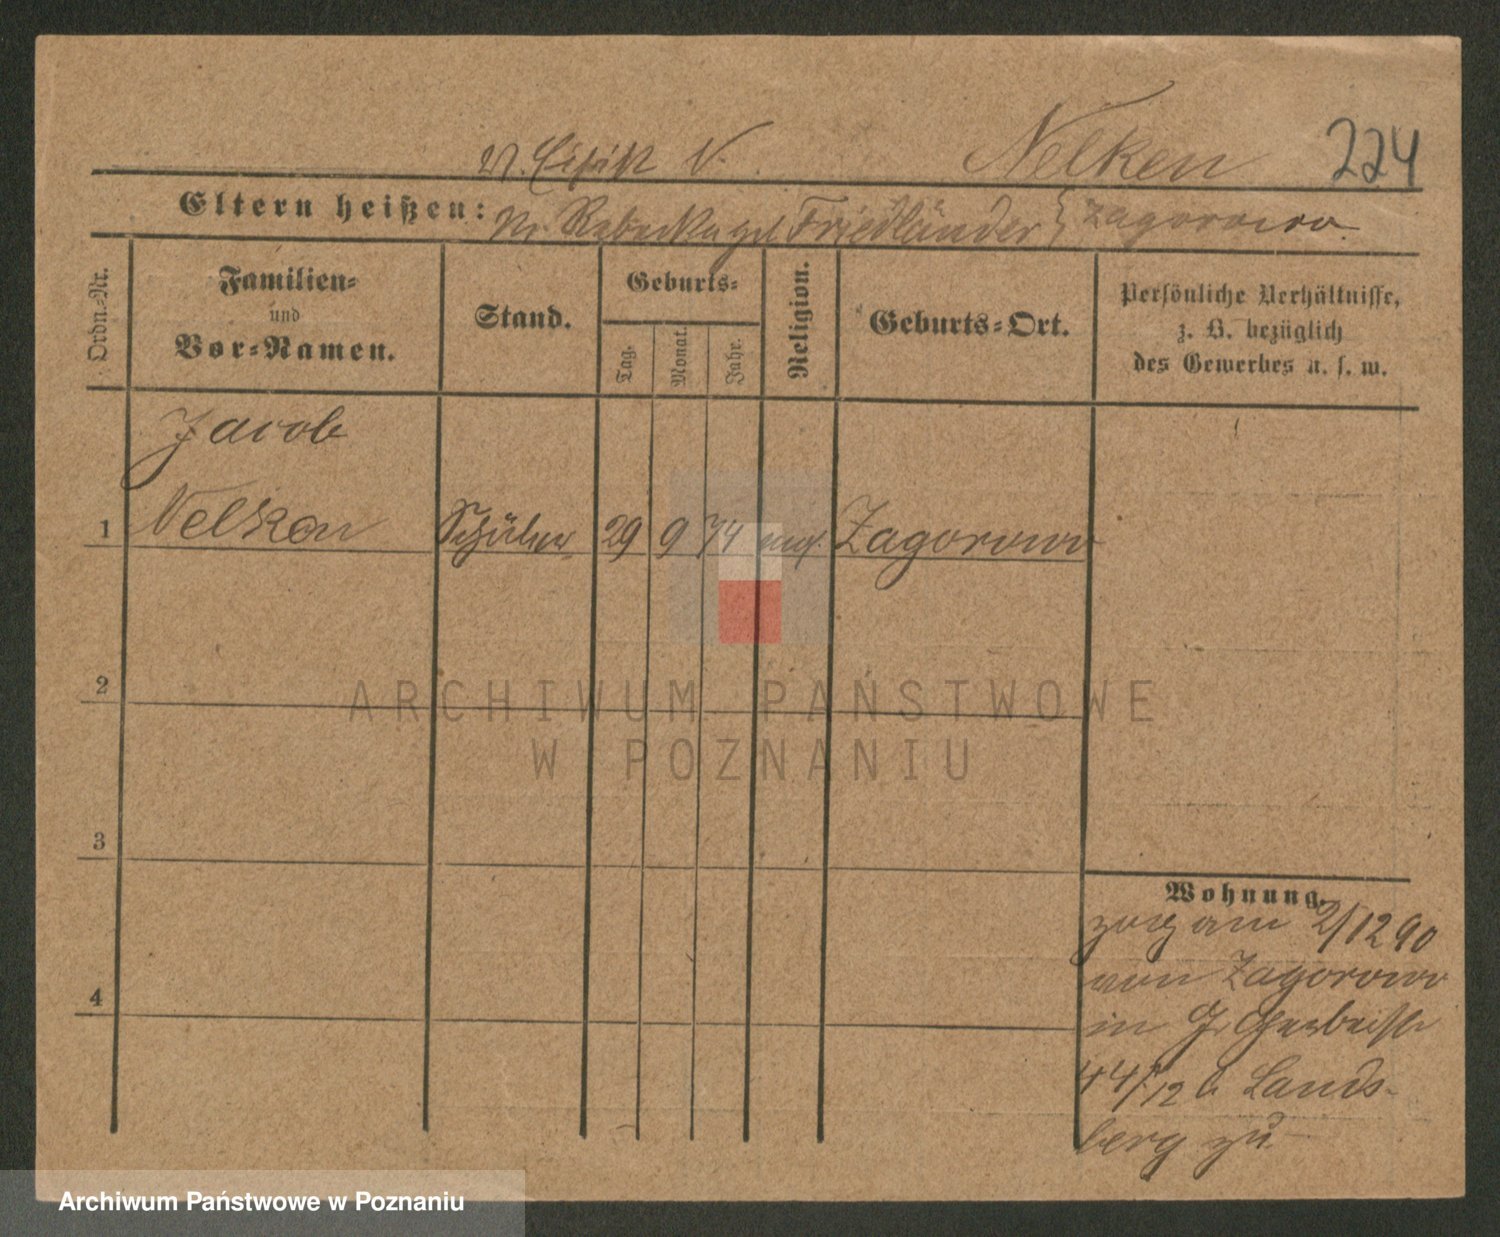 Nelken 224
V. Eisik N.
Eltern heißen:
M. Rebecka geb. Friedländer } Zagorowo.
Ordn.-Nr.
Familien-
und
Vor-Namen.
Stand.
Geburts-
Tag.
Monat.
Jahr.
Religion.
Geburts-Ort.
Persönliche Verhältnisse,
z. B. bezüglich
des Gewerbes u. s. w.
Jacob
1 Nelken Schüler 29 9 74 Zagorowo
2
3
4
Wohnung.
zog am 2/12 90
von Zagorowo
in Gr.
44/12 b. Lands-
berg zu.
ARCHIWUM PAŃSTWOWE
W POZNANIU
Archiwum Państwowe w Poznaniu